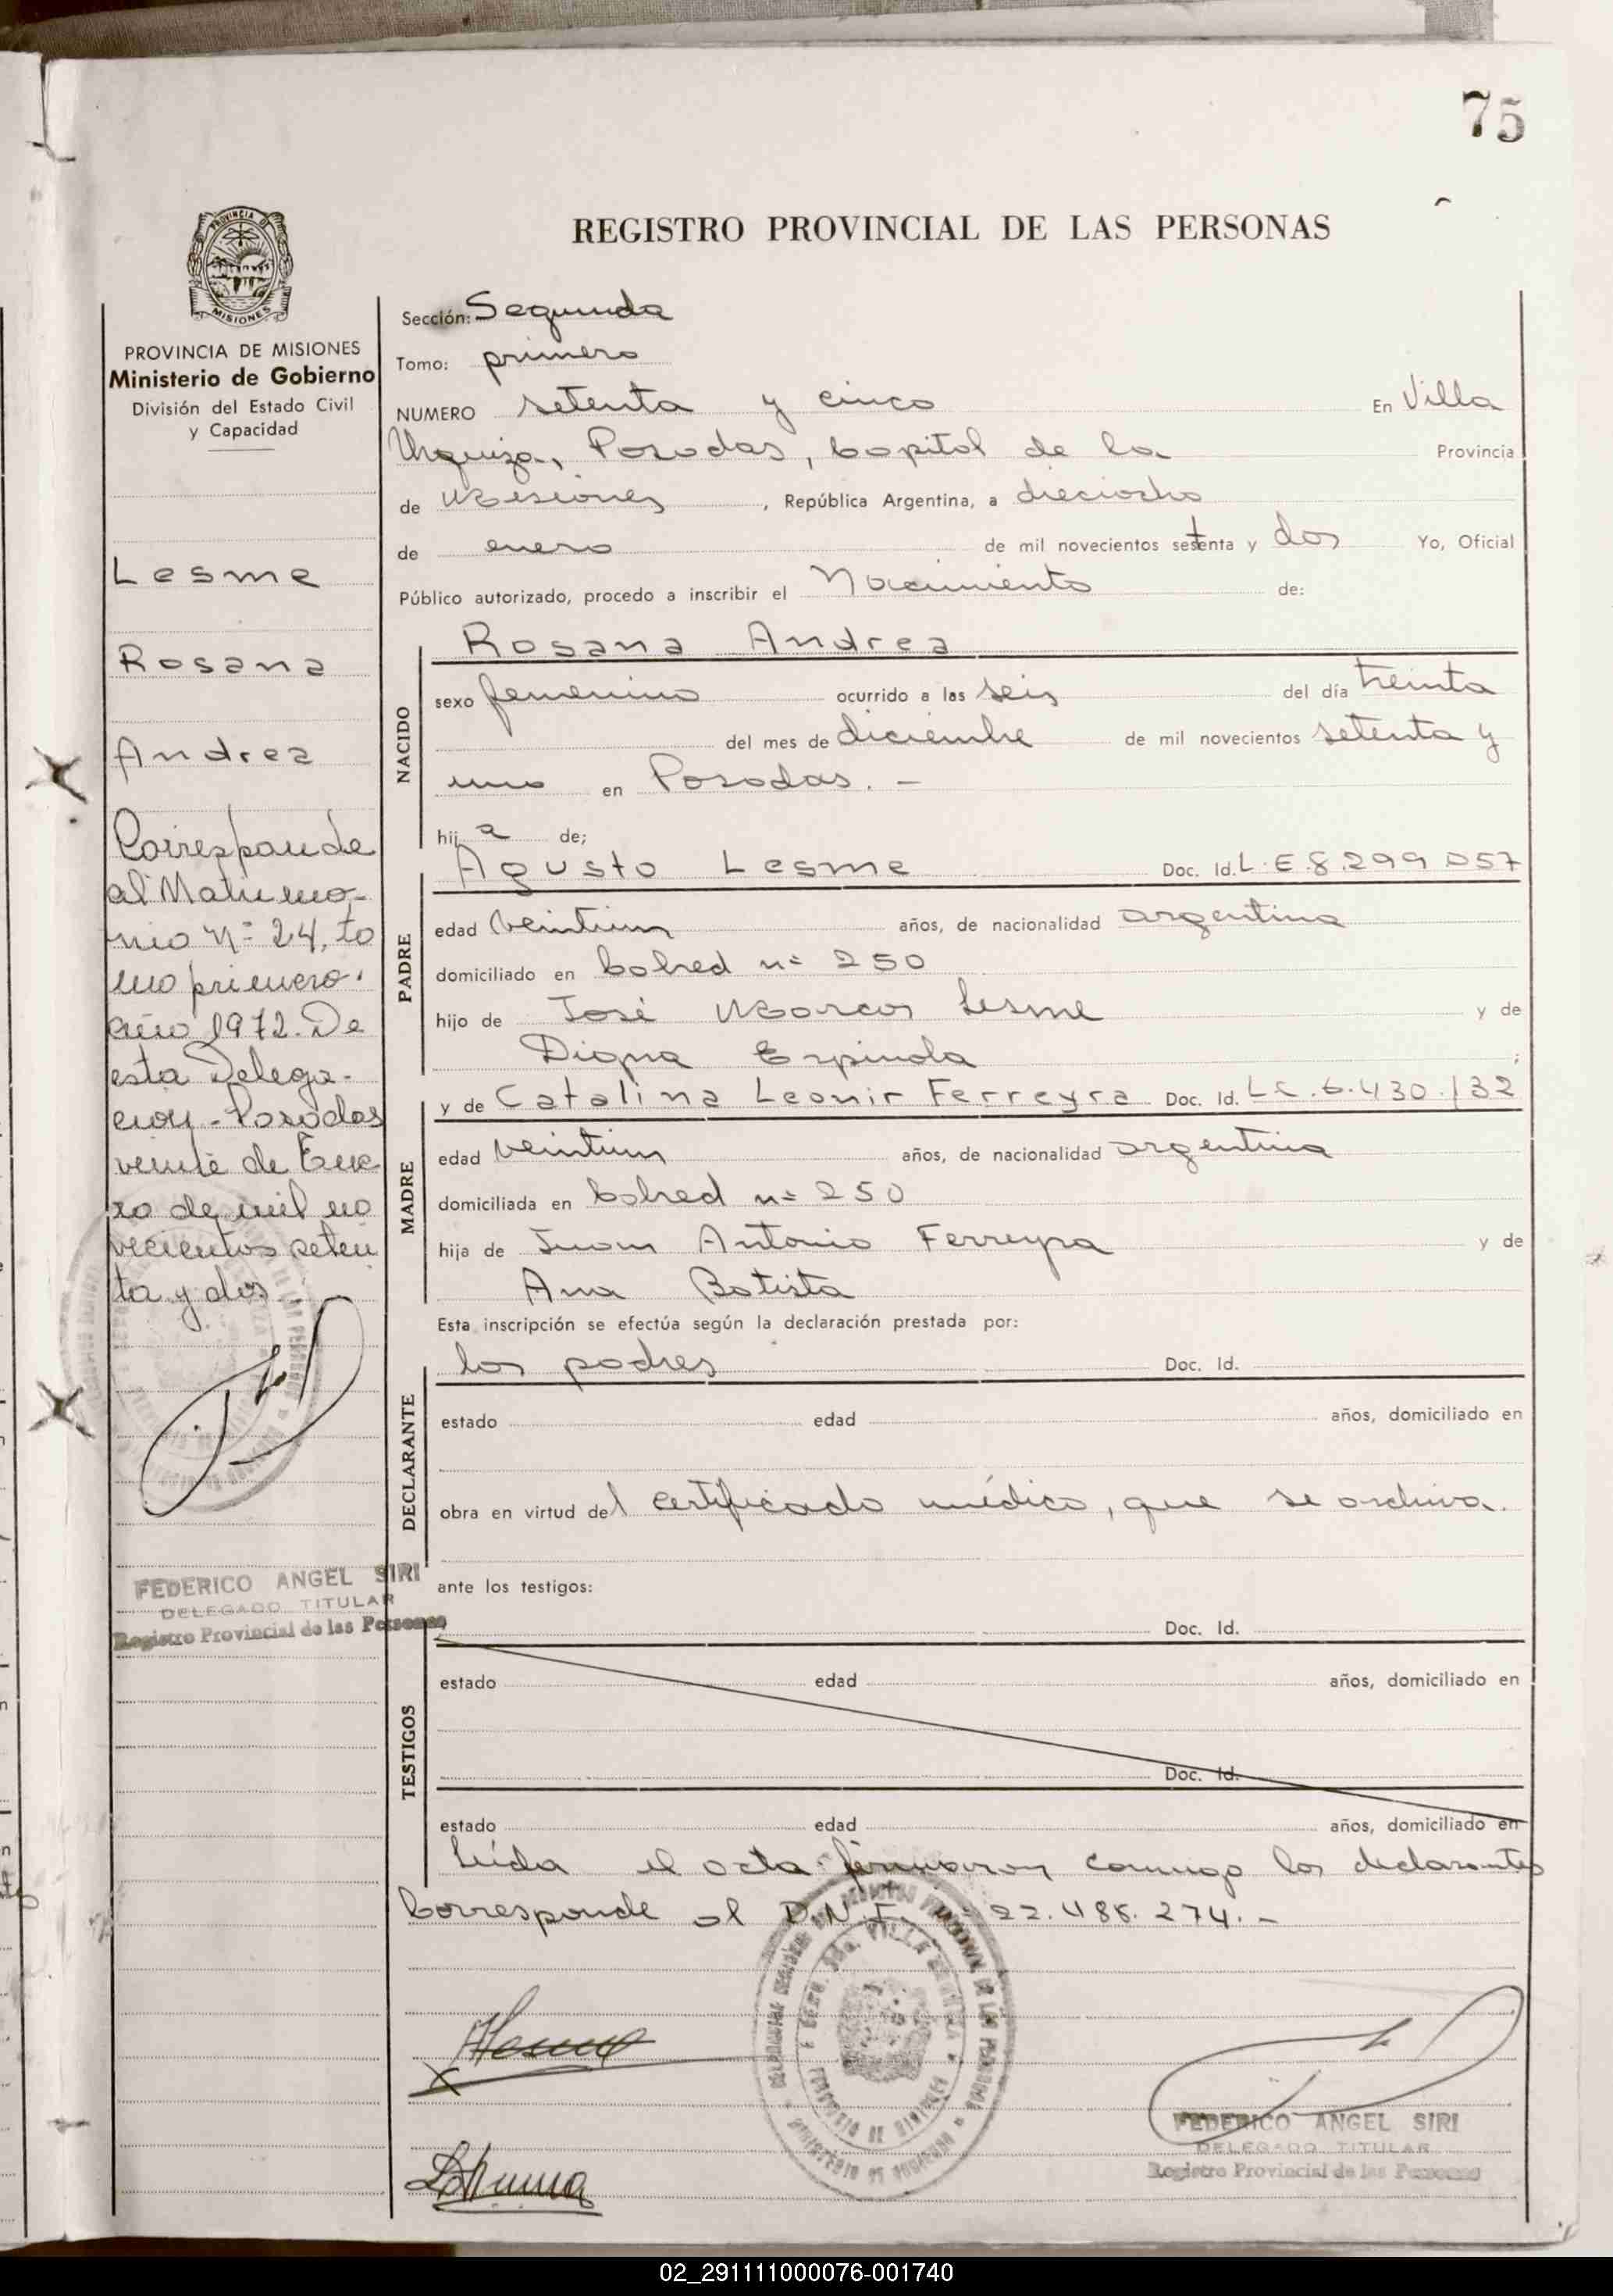 75
REGISTRO PROVINCIAL DE LAS PERSONAS
PROVINCIA DE
MISIONES
PROVINCIA DE MISIONES
Ministerio de Gobierno
División del Estado Civil
y Capacidad
Lesme
Rosana
Andrea
Corresponde
al Matrimo-
nio Nº 24, to
mo primero.
año 1972. De
esta Delega-
cion - Posadas
veinte de Ene
ro de mil no
vecientos seten
ta y dos.
FEDERICO ANGEL SIRI
DELEGADO TITULAR
Registro Provincial de las Personas
Sección: Segunda
Tomo: primero
NUMERO setenta y cinco En Villa
Urquiza, Posadas, Capital de la Provincia
de Misiones, República Argentina, a dieciocho
de enero de mil novecientos setenta y dos Yo, Oficial
Público autorizado, procedo a inscribir el Nacimiento de:
NACIDO
Rosana Andrea
sexo femenino ocurrido a las seis del día treinta
del mes de diciembre de mil novecientos setenta y
uno en Posadas. -
hija de;
PADRE
Agusto Lesme Doc. Id. L.E 8.299.057
edad veintiun años, de nacionalidad argentina
domiciliado en nº 250
hijo de José Marcos Lesme y de
Digna Espinola ;
MADRE
y de Catalina Leonir Ferreyra Doc. Id. L.C. 6.430.132
edad veintiun años, de nacionalidad argentina
domiciliada en nº 250
hija de Juan Antonio Ferreyra y de
Ana Batista
Esta inscripción se efectúa según la declaración prestada por:
DECLARANTE
los padres Doc. Id.
estado edad años, domiciliado en
obra en virtud del certificado médico, que se archiva.
ante los testigos:
TESTIGOS
Doc. Id.
estado edad años, domiciliado en
Doc. Id.
estado edad años, domiciliado en
Leída el acta firmaron conmigo los declarantes
Corresponde al D.N.I. 22.488.274. -
FEDERICO ANGEL SIRI
DELEGADO TITULAR
Registro Provincial de las Personas
02_291111000076-001740